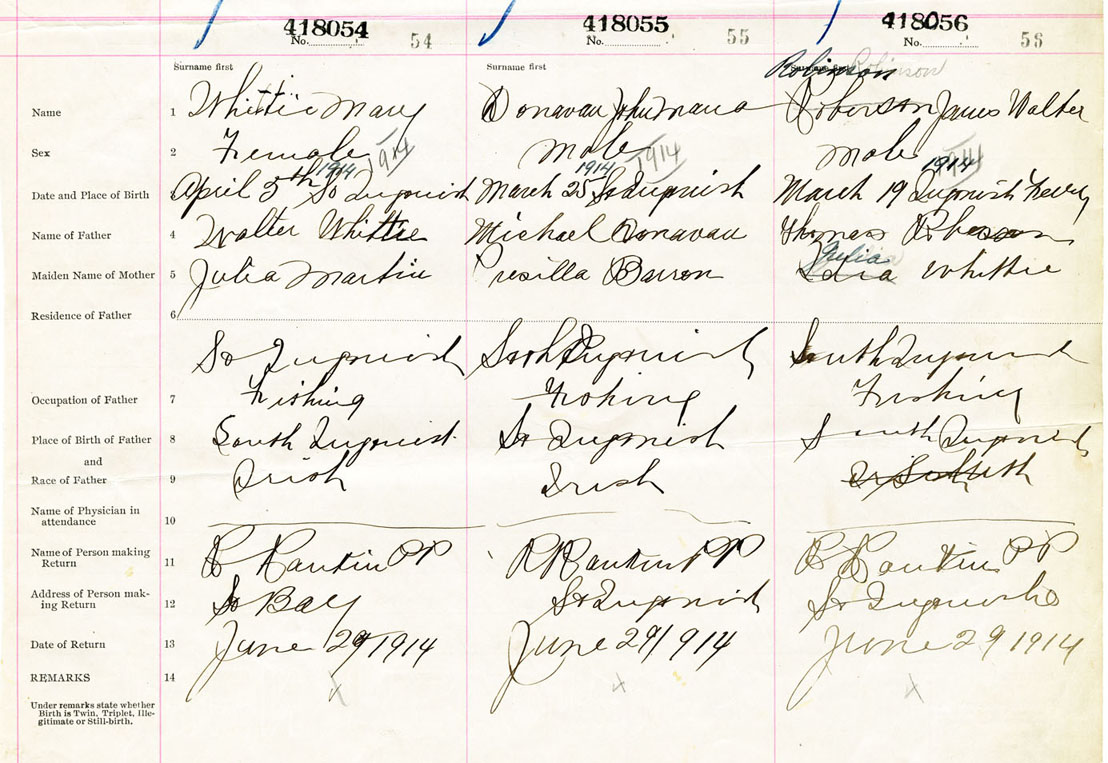 418054 418055 418056
No. 54 No. 55 No. 56
Surname first Surname first Surname first
Robinson Robinson
Name 1 Whittie Mary Donavan John Roberson James Walter
Sex 2 Female 1914 Male 1914 Male 1914
1914 1914 1914
Date and Place of Birth April 5th So Ingonish March 25 So Ingonish March 19 Ingonish Ferry
Name of Father 4 Walter Whittie Michael Donavan Thomas
Julia
Maiden Name of Mother 5 Julia Martin Whittie
Residence of Father 6
So Ingonish South Ingonish South Ingonish
Occupation of Father 7 Fishing Fishing Fishing
Place of Birth of Father 8 South Ingonish So Ingonish South Ingonish
and
Race of Father 9 Irish Irish
Name of Physician in
attendance 10
Name of Person making
Return 11 R Rankin PP R Rankin PP R Rankin PP
Address of Person mak-
ing Return 12 So Bay So Ingonish So Ingonish
Date of Return 13 June 29 1914 June 29 1914 June 29 1914
REMARKS 14
x x x
Under remarks state whether
Birth is Twin, Triplet, Ille-
gitimate or Still-birth.